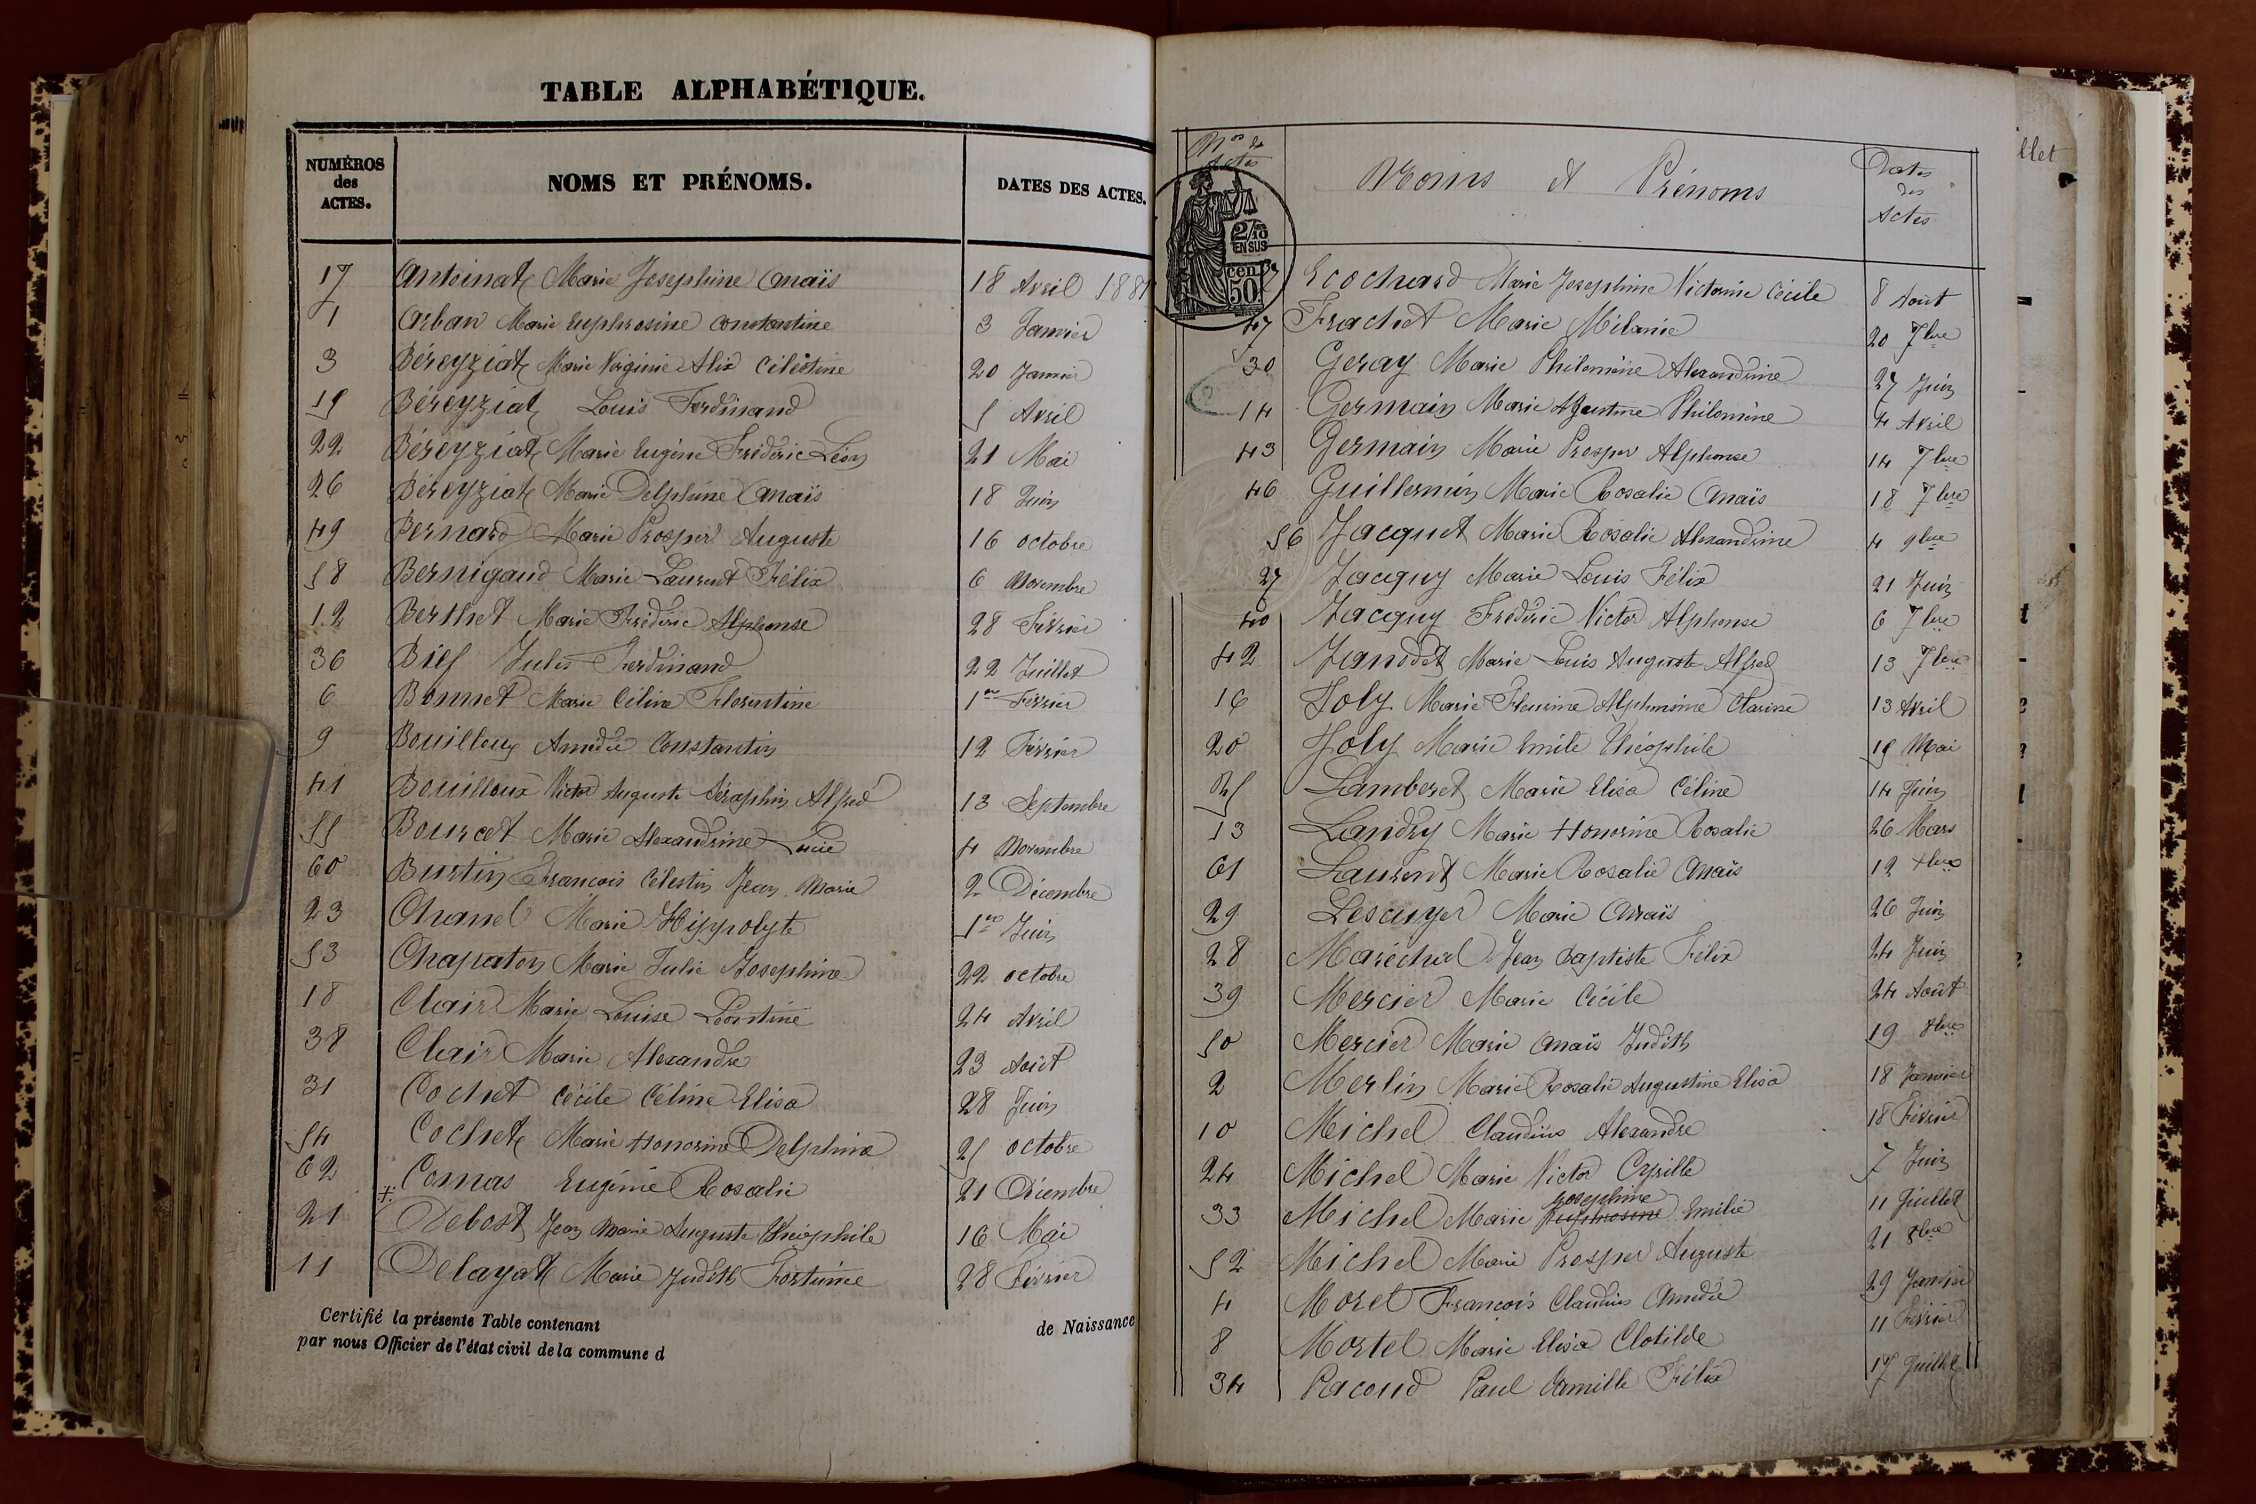 TABLE ALPHABÉTIQUE.
NUMÉROS des ACTES. NOMS ET PRÉNOMS. DATES DES ACTES.
17 Antoinat Marie Josephine Anaïs 18 Avril 1881
1 Arban Marie Euphrosine Constantine 3 Janvier
3 Béreyziat Marie Virginie Alix Célestine 20 Janvier
15 Béreyziat Louis Ferdinand 5 Avril
22 Béreyziat Marie Eugène Fréderic Léon 21 Mai
26 Béreyziat Marie Delphine Anaïs 18 Juin
49 Bernard Marie Prosper Auguste 16 octobre
58 Bernigaud Marie Laurent Félix 6 Novembre
12 Berthet Marie Fréderic Alphonse 28 Février
36 Bief Jules Ferdinand 22 Juillet
6 Bonnet Marie Céline Florentine 1er Février
9 Bouilloux Amédée Constantin 12 Février
41 Bouilloux Victor Auguste Séraphin Alfred 13 Septembre
55 Bourcet Marie Alexandrine Lucie 4 Novembre
60 Burtin François Célestin Jean Marie 2 Décembre
23 Chanel Marie Hippolyte 1er Juin
53 Chapaton Marie Julie Josephine 22 octobre
18 Clair Marie Louise Léontine 24 Avril
38 Clair Marie Alexandre 23 Août
31 Cochet Cécile Céline Elisa 28 Juin
54 Cochet Marie Honorine Delphine 25 octobre
62 + Comas Eugénie Rosalie 21 Décembre
21 Debost Jean Marie Auguste Théophile 16 Mai
11 Delayat Marie Judith Fortunée 28 Février
Certifié la présente Table contenant de Naissance
par nous Officier de l'état civil de la commune d
Nos des Actes Noms et Prénoms Dates des Actes
2/10 EN SUS
50 cen.
Ecochard Marie Josephine Victorine Cécile 8 Aout
47 Frachet Marie Mélanie 20 7bre
30 Geray Marie Philomène Alexandrine 27 Juin
14 Germain Marie Agustine Philomène 4 Avril
43 Germain Marie Prosper Alphonse 14 7bre
46 Guillermin Marie Rosalie Anaïs 18 7bre
56 Jacquet Marie Rosalie Alexandrine 4 9bre
27 Jacquy Marie Louis Félix 21 Juin
40 Jacquy Fréderic Victor Alphonse 6 7bre
42 Janodet Marie Louis Auguste Alfred 13 7bre
16 Joly Marie Fleurine Alphonsine Clarisse 13 Avril
20 Joly Marie Emile Théophile 15 Mai
25 Lamberet Marie Elisa Céline 14 Juin
13 Landry Marie Honorine Rosalie 26 Mars
61 Laurent Marie Rosalie Anaïs 12 xbre
29 Lescuyer Marie Anaïs 26 Juin
28 Maréchal Jean Baptiste Félix 24 Juin
39 Mercier Marie Cécile 24 Août
50 Mercier Marie Anaïs Judith 19 8bre
2 Merlin Marie Rosalie Augustine Elisa 18 Janvier
10 Michel Claudius Alexandre 18 Février
24 Michel Marie Victor Cyrille 7 Juin
Josephine
33 Michel Marie Euphrosine Emilie 11 Juillet
52 Michel Marie Prosper Auguste 21 8bre
4 Moret François Claudius Amédée 29 Janvier
8 Mortel Marie Elisa Clotilde 11 Février
34 Pacoud Paul Camille Félix 17 Juillet
llet